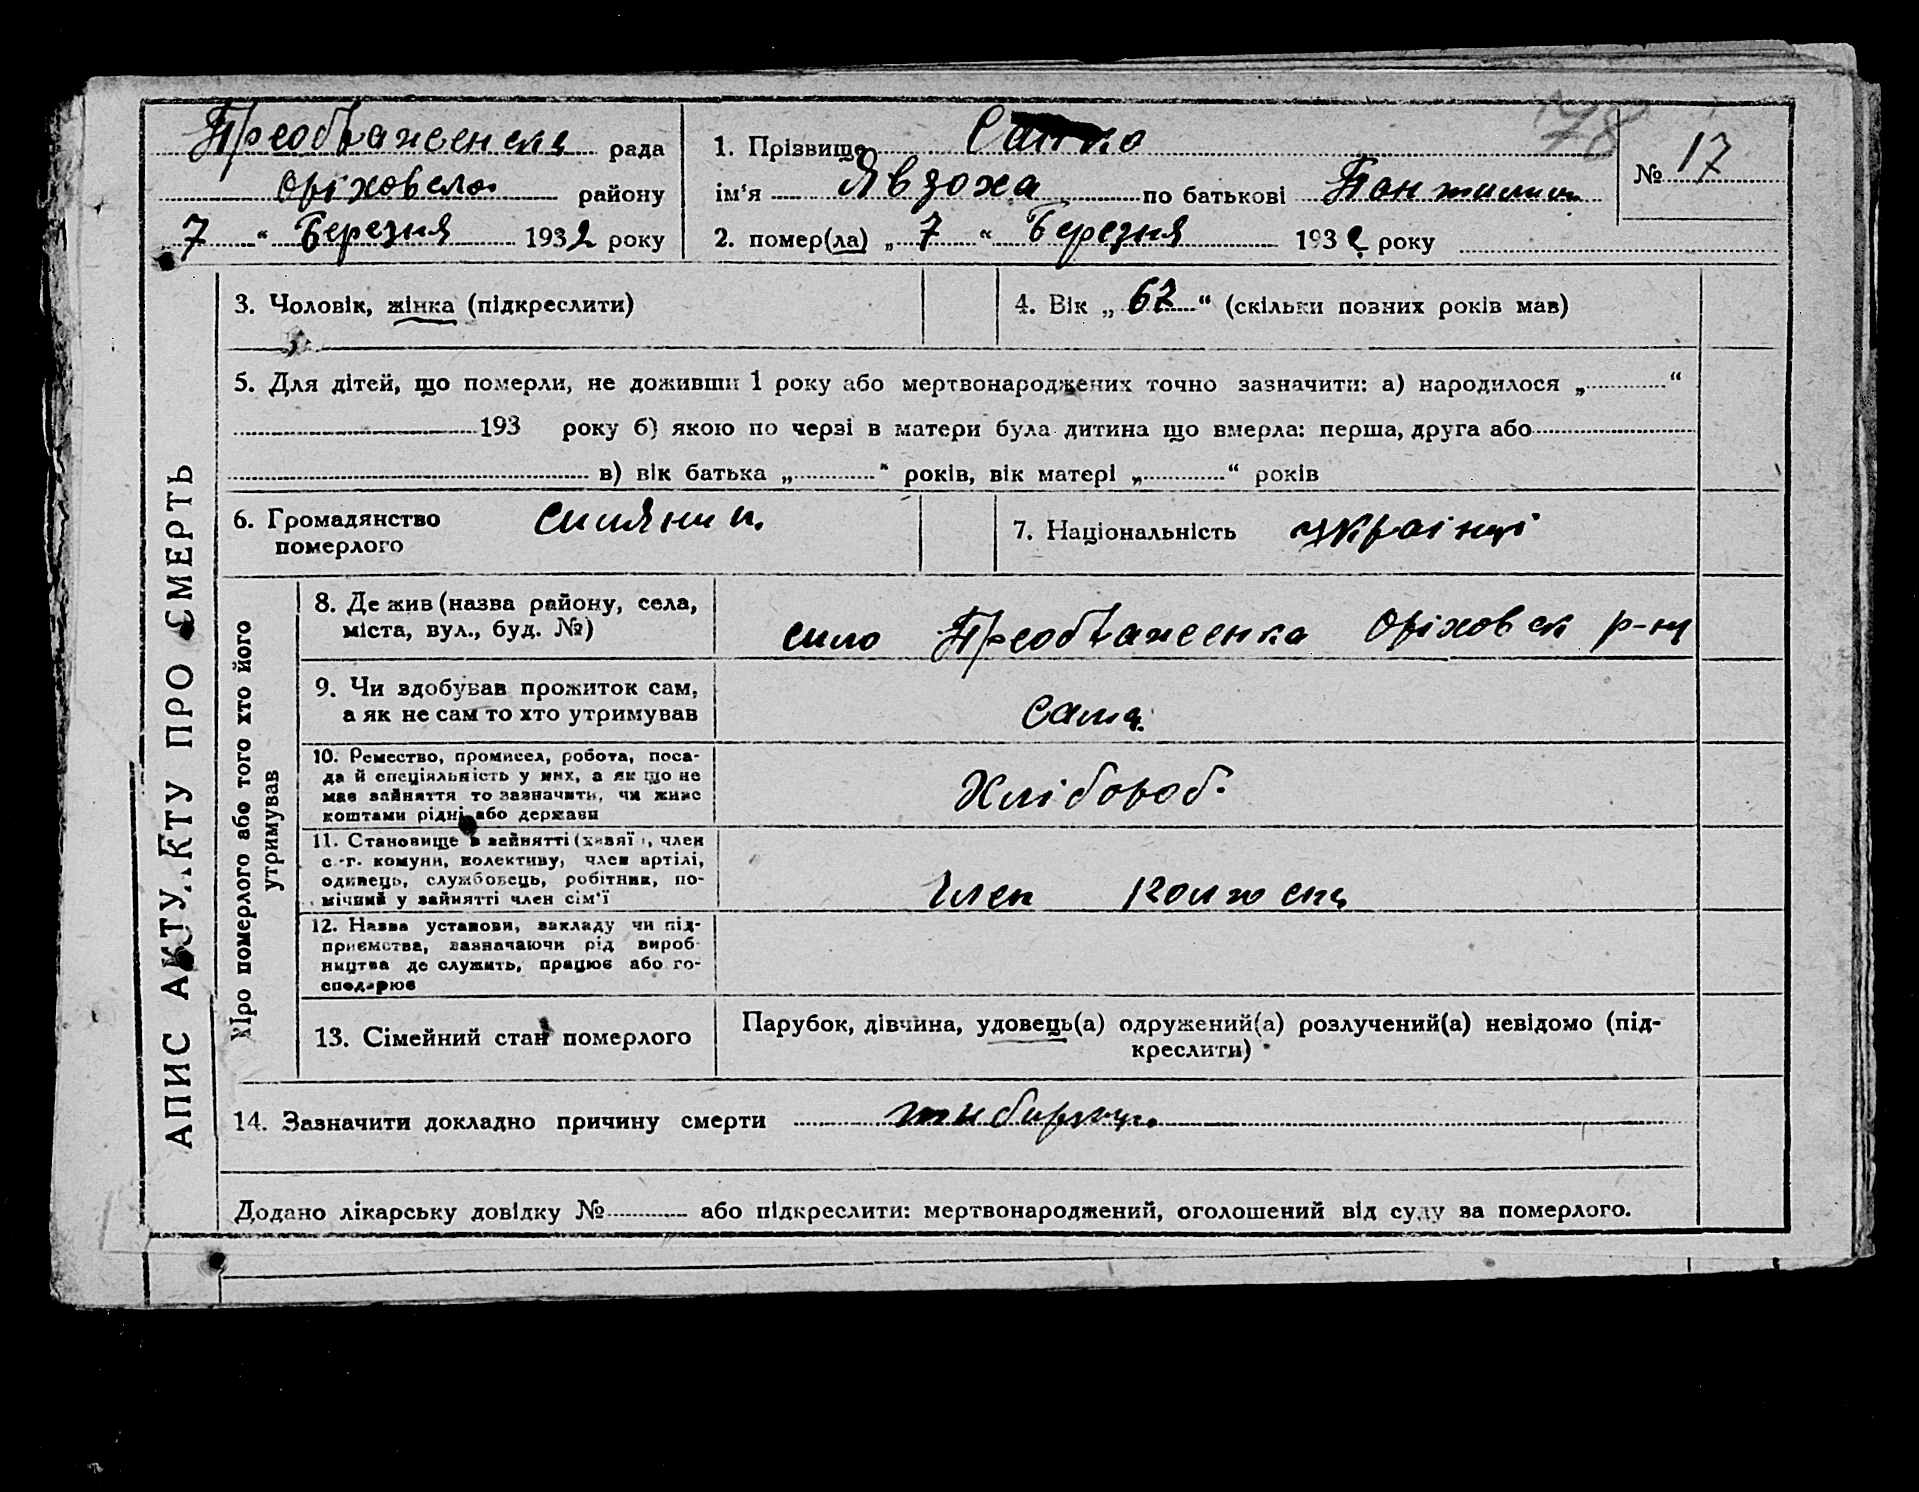 78
Преображенськ рада
Оріховсько району
7 “ Березня 1932 року
1. Прізвище Санко
№ 17
ім‘я Явдоха по батькові
2. помер(ла) „ 7 “ Березня 1932 року
3. Чоловік, жінка (підкреслити)
4. Вік „ 67 “ (скільки повних років мав)
5. Для дітей, що померли, не доживши 1 року або мертвонароджених точно зазначити: а) народилося „ “
193 року б) якою по черзі в матери була дитина що вмерла: перша, друга або
в) вік батька „ “ років, вік матері „ “ років
6. Громадянство
померлого
7. Національність україн
8. Де жив (назва району, села,
міста, вул., буд. №)
село Преображенка Оріховськ р-ну
9. Чи здобував прожиток сам,
а як не сам то хто утримував
Сама.
10. Ремество, промисел, робота, поса-
да й спеціяльність у них, а як що не
має зайняття то зазначити, чи живе
коштами рідні або держави
Хлібороб.
11. Становище в зайнятті (хазяїн, член
с.-г. комуни, колективу, член артілі,
одинець, службовець, робітник, по-
мічний у зайнятті член сім‘ї
Член
12. Назва установи, закладу чи під-
приємства, зазначаючи рід вироб-
ництва де служить, працює або го-
сподарює
13. Сімейний стан померлого
Парубок, дівчина, удовець(а) одружений(а) розлучений(а) невідомо (під-
креслити)
14. Зазначити докладно причину смерти
Додано лікарську довідку № або підкреслити: мертвонароджений, оголошений від суду за померлого.
АПИС АКТУ ПРО СМЕРТЬ
Про померлого або того хто його
утримував